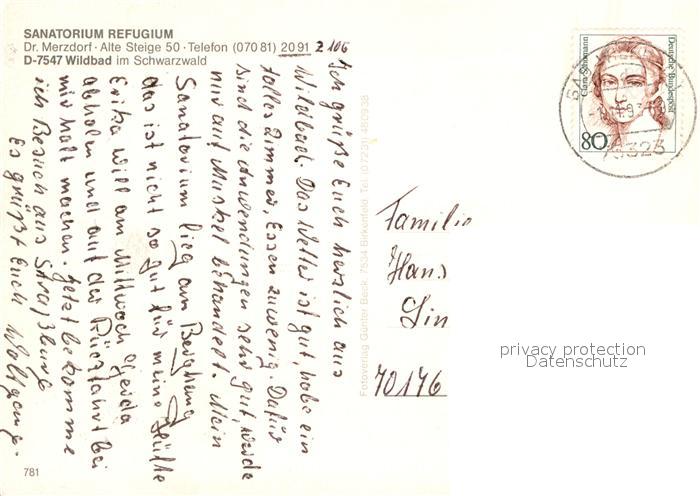 SANATORIUM REFUGIUM
Dr. Merzdorf · Alte Steige 50 · Telefon (070 81) 20 91 2106
D-7547 Wildbad im Schwarzwald
Ich grüße Euch herzlich aus
Wildbad. Das Wetter ist gut, habe ein
tolles Zimmer, Essen zuwenig. Dafür
sind die Anwendungen sehr gut, werde
nur auf Muskel behandelt. Mein
Sanatorium lieg am Berghang
das ist nicht so gut für meine Hüfte
Erika will am Mittwoch Gerda
abholen und auf der Rückfahrt bei
mir halt machen. Jetzt bekomme
ich Besuch aus Straßburg
Es grüßt Euch Wolfgang.
781
Fotoverlag Günter Beck, 7534 Birkenfeld, Tel.
Clara Schumann
Deutsche Bundespost
80
75323
Familie
Hans
Lin
70176
privacy protection
Datenschutz